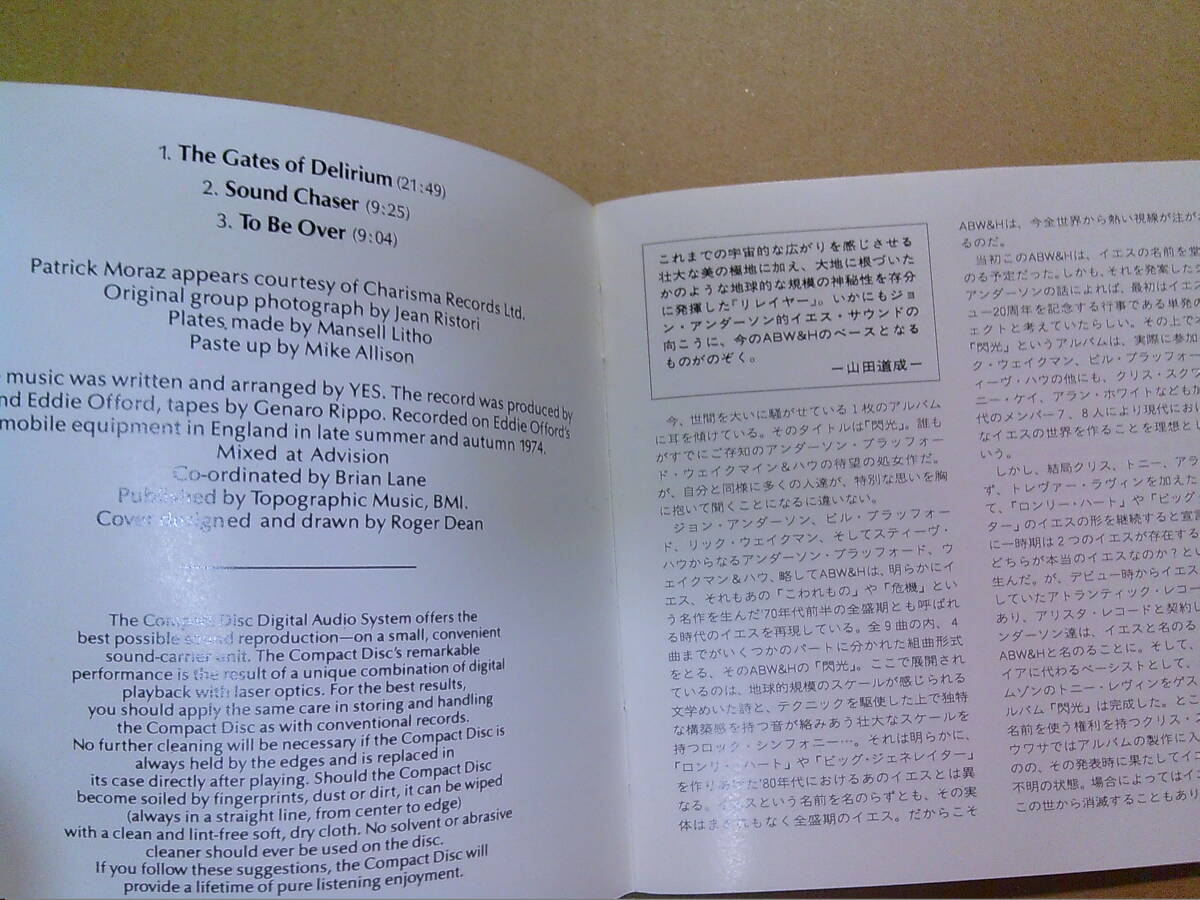 1. The Gates of Delirium (21:49)
2. Sound Chaser (9:25)
3. To Be Over (9:04)
Patrick Moraz appears courtesy of Charisma Records Ltd.
Original group photograph by Jean Ristori
Plates made by Mansell Litho
Paste up by Mike Allison
music was written and arranged by YES. The record was produced by
Eddie Offord, tapes by Genaro Rippo. Recorded on Eddie Offord's
mobile equipment in England in late summer and autumn 1974.
Mixed at Advision
Co-ordinated by Brian Lane
Published by Topographic Music, BMI.
Cover designed and drawn by Roger Dean
The Compact Disc Digital Audio System offers the
best possible sound reproduction—on a small, convenient
sound-carrier unit. The Compact Disc's remarkable
performance is the result of a unique combination of digital
playback with laser optics. For the best results,
you should apply the same care in storing and handling
the Compact Disc as with conventional records.
No further cleaning will be necessary if the Compact Disc is
always held by the edges and is replaced in
its case directly after playing. Should the Compact Disc
become soiled by fingerprints, dust or dirt, it can be wiped
(always in a straight line, from center to edge)
with a clean and lint-free soft, dry cloth. No solvent or abrasive
cleaner should ever be used on the disc.
If you follow these suggestions, the Compact Disc will
provide a lifetime of pure listening enjoyment.
これまでの宇宙的な広がりを感じさせる
壮大な美の極地に加え、大地に根づいた
かのような地球的な規模の神秘性を存分
に発揮した「リレイヤー」。いかにもジョ
ン・アンダーソン的イエス・サウンドの
向こうに、今のABW&Hのベースとなる
ものがのぞく。
—山田道成—
今、世間を大いに騒がせている1枚のアルバム
に耳を傾けている。そのタイトルは「閃光」。誰も
がすでにご存知のアンダーソン・ブラッフォー
ド・ウェイクマイン&ハウの待望の処女作だ。
が、自分と同様に多くの人達が、特別な思いを胸
に抱いて聞くことになるに違いない。
ジョン・アンダーソン、ビル・ブラッフォー
ド、リック・ウェイクマン、そしてスティーヴ・
ハウからなるアンダーソン・ブラッフォード、ウ
ェイクマン&ハウ、略してABW&Hは、明らかにイ
エス、それもあの「こわれもの」や「危機」とい
う名作を生んだ'70年代前半の全盛期とも呼ばれ
る時代のイエスを再現している。全9曲の内、4
曲までがいくつかのパートに分かれた組曲形式
をとる、そのABW&Hの「閃光」。ここで展開され
ているのは、地球的規模のスケールが感じられる
文学めいた詩と、テクニックを駆使した上で独特
な構築感を持つ音が絡みあう壮大なスケールを
持つロック・シンフォニー…。それは明らかに、
「ロンリー・ハート」や「ビッグ・ジェネレイター」
を作りあげた'80年代におけるあのイエスとは異
なる。イエスという名前を名のらずとも、その実
体はまぎれもなく全盛期のイエス。だからこそ
ABW&Hは、今全世界から熱い視線が注が
るのだ。
当初このABW&Hは、イエスの名前を堂
のる予定だった。しかも、それを発案した
アンダーソンの話によれば、最初はイエス
ュー20周年を記念する行事である単発の
ェクトと考えていたらしい。その上で
「閃光」というアルバムは、実際に参加
ク・ウェイクマン、ビル・ブラッフォー
ィーヴ・ハウの他にも、クリス・スクワ
ニー・ケイ、アラン・ホワイトなども加
代のメンバー7、8人により現代におけ
なイエスの世界を作ることを理想とし
いう。
しかし、結局クリス、トニー、アラ
ず、トレヴァー・ラヴィンを加えた
て、「ロンリー・ハート」や「ビッグ・
ター」のイエスの形を継続すると宣言
に一時期は2つのイエスが存在する
どちらが本当のイエスなのか？とい
生んだ。が、デビュー時からイエス
していたアトランティック・レコー
あり、アリスタ・レコードと契約し
ンダーソン達は、イエスと名のる
ABW&Hと名のることに。そして、
イアに代わるベーシストとして、
ムゾンのトニー・レヴィンをゲス
ルバム「閃光」は完成した。とこ
名前を使う権利を持つクリス・ス
ウワサではアルバムの製作に入
のの、その発表時に果たしてイエ
不明の状態。場合によってはイエ
この世から消滅することもあり